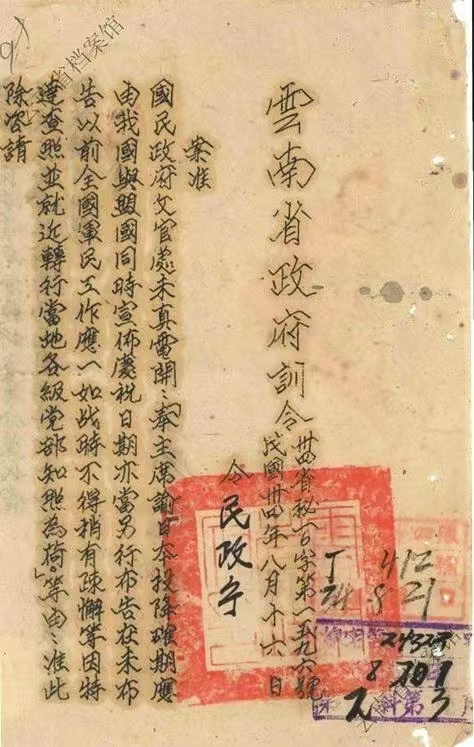 雲南省政府訓令
卅四省秘一百字第一五九六號
民國卅四年八月十六日
令民政
案准
國民政府文官處未真電開：「奉主席諭日本投降確期應
由我國與盟國同時宣佈慶祝日期亦當另行布告在未布
告以前全國軍民工作應一如战時不得稍有疎懈等因特
達查照並就近轉行當地各級党部知照為荷。」等由：准此
除咨請
省档案馆
丁 412
34 8 21